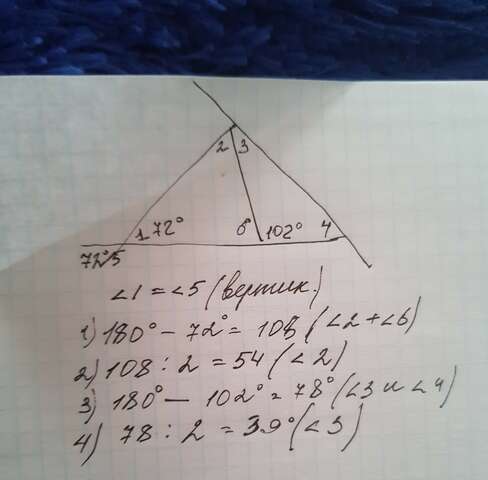 2 3
1 72° 6° 102° 4
72° 5
∠1 = ∠5 (вертик.)
1) 180° - 72° = 108 (∠2 + ∠6)
2) 108 : 2 = 54 (∠2)
3) 180° - 102° = 78° (∠3 и ∠4)
4) 78 : 2 = 39° (∠3)